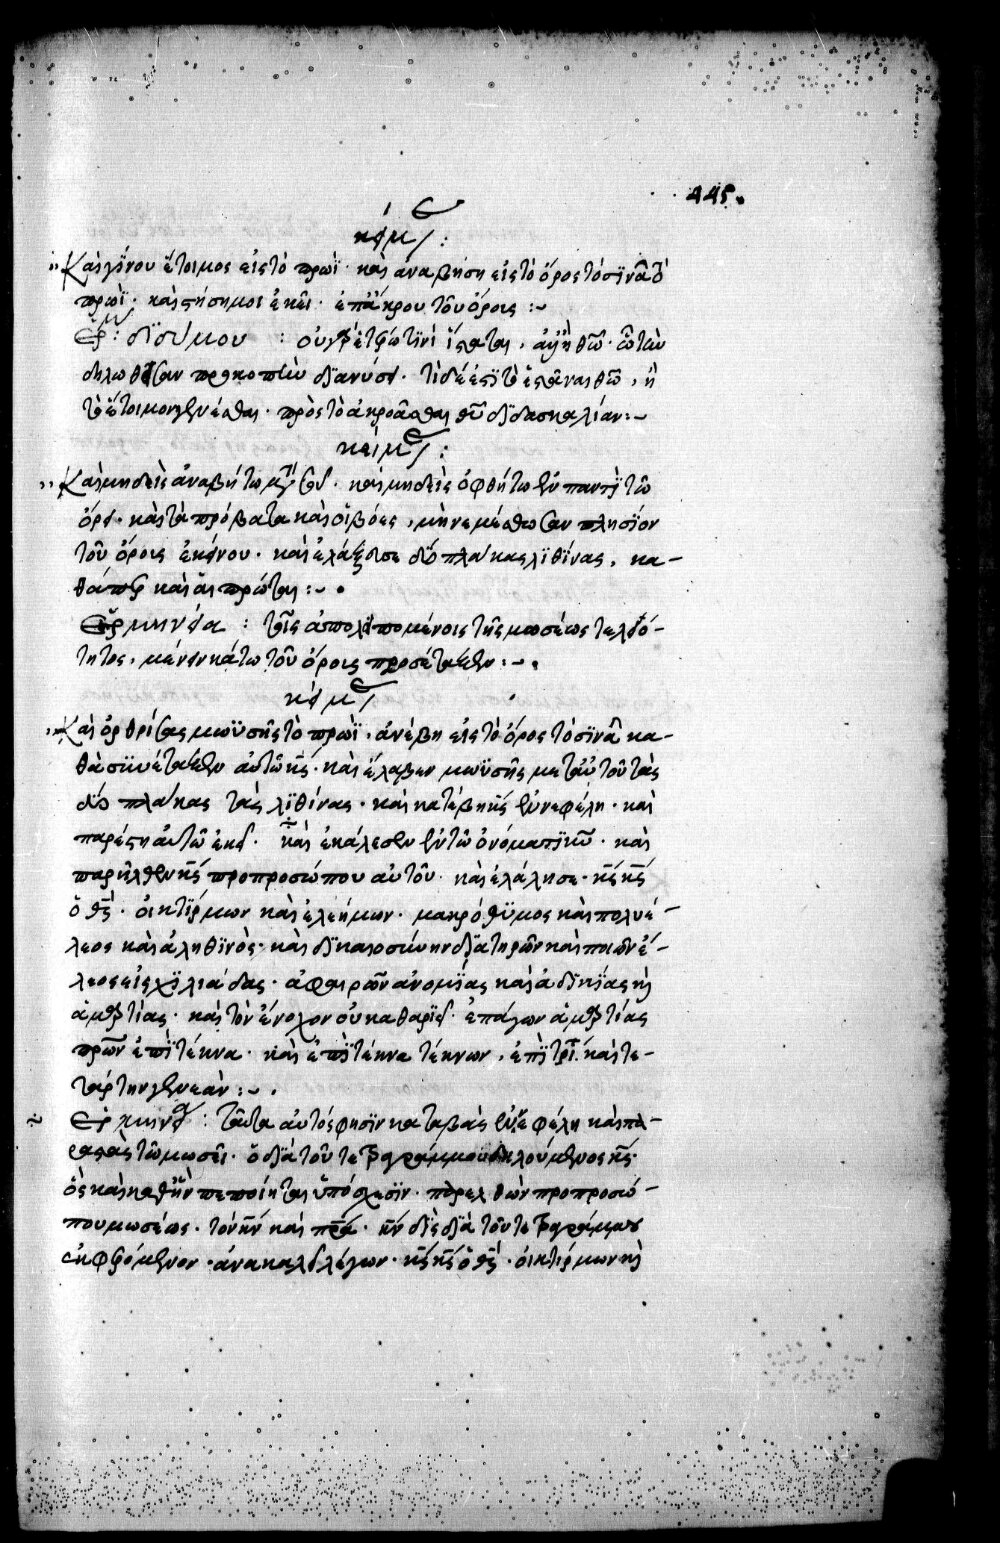 445.
κείμ(ενον):
"Καὶ γίνου ἕτοιμος εἰς τὸ πρωῒ· καὶ αναβήση εἰς τὸ ὄρος τὸ σϊνᾶ τὸ
πρωῒ· καὶ στήσῃ μοι ἐκεῖ· ἐπ' ἄκρου τοῦ ὄρους:~
Ἑρμ: διδύμου: οὐχ
δηλωθεῖσαν προκοπὴν διανύσει· τί δέ ἐστι τὸ ἑστάναι θῶ, ἢ
τὸ ἕτοιμον γενέσθαι· πρὸς τὸ ἀκροᾶσθαι θῦ διδασκαλίαν:~
κείμ(ενον):
"Καὶ μηδεὶς ἀναβήτω μετὰ σοῦ· καὶ μηδεὶς ὀφθήτω ἐν παντὶ τῶ
ὄρει· καὶ τὰ πρόβατα καὶ οἱ βόες, μὴ νεμέσθωσαν πλησίον
τοῦ ὄρους ἐκείνου· καὶ ἐλάξευσε δύο πλάκας λϊθίνας, κα-
θάπερ καὶ αἱ πρῶται:~.
Ἑρμηνεία: τοῖς ἀπολειπομένοις τῆς μωσέως τελειό-
τητος, μένειν κάτω τοῦ ὄρους προσέταξεν:~.
κείμ(ενον)
"Καὶ ὀρθρίσας μωϋσῆς τὸ πρωῒ, ἀνέβη εἰς τὸ ὄρος τὸ σϊνᾶ κα-
θὰ συνέταξεν αὐτῶ κς· καὶ ἔλαβεν μωϋσῆς μετ' αὐτοῦ τὰς
δύο πλάκας τὰς λϊθίνας· καὶ κατέβη κς ἐν νεφέλη· καὶ
παρέστη αὐτῶ ἐκεῖ· καὶ ἐκάλεσεν ἐν τῶ ὀνόματι κυ· καὶ
παρῆλθεν κς προ προσώπου αὐτοῦ· καὶ ἐλάλησε· κς κς
ὁ θς· οἰκτίρμων καὶ ἐλεήμων· μακρόθυμος καὶ πολυέ-
λεος καὶ ἀληθϊνὸς· καὶ δικαιοσύνην διατηρῶν καὶ ποιῶν ἔ-
λεος εἰς χϊλιάδας· ἀφαιρῶν ἀνομίας καὶ ἀδικίας κὶ
ἁμαρτίας· καὶ τὸν ἔνοχον οὐ καθαριεῖ· ἐπάγων ἁμαρτίας
πρῶν ἐπὶ τέκνα· καὶ ἐπὶ τέκνα τέκνων, ἐπὶ τρί· καὶ τε-
τάρτην γενεὰν:~.
Ἑρμηνεία: ταῦτα αὐτός φησϊν καταβὰς ἐν νεφέλη καὶ πα-
ραστὰς τῶ μωσεῖ· ὁ διὰ τοῦ τετραγράμμου δηλούμενος κς·
ὃς καὶ καθ' ἣν πεποίηται ὑπόσχεσϊν· παρελθὼν προ προσώ-
που μωσέως· τὸν κν καὶ πρα· κν δὶς διὰ τοῦ τετραγράμμου
ἐκφερόμενον· ἀνακαλεῖ λέγων· κς κς ὁ θς· οἰκτίρμων κὶ